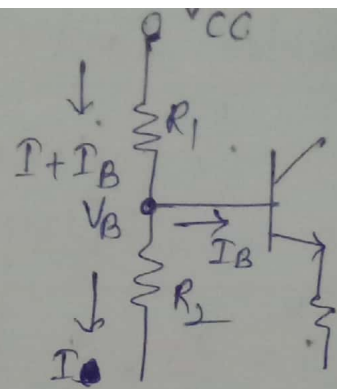 VCC
R1
I + IB
VB
IB
R2
I